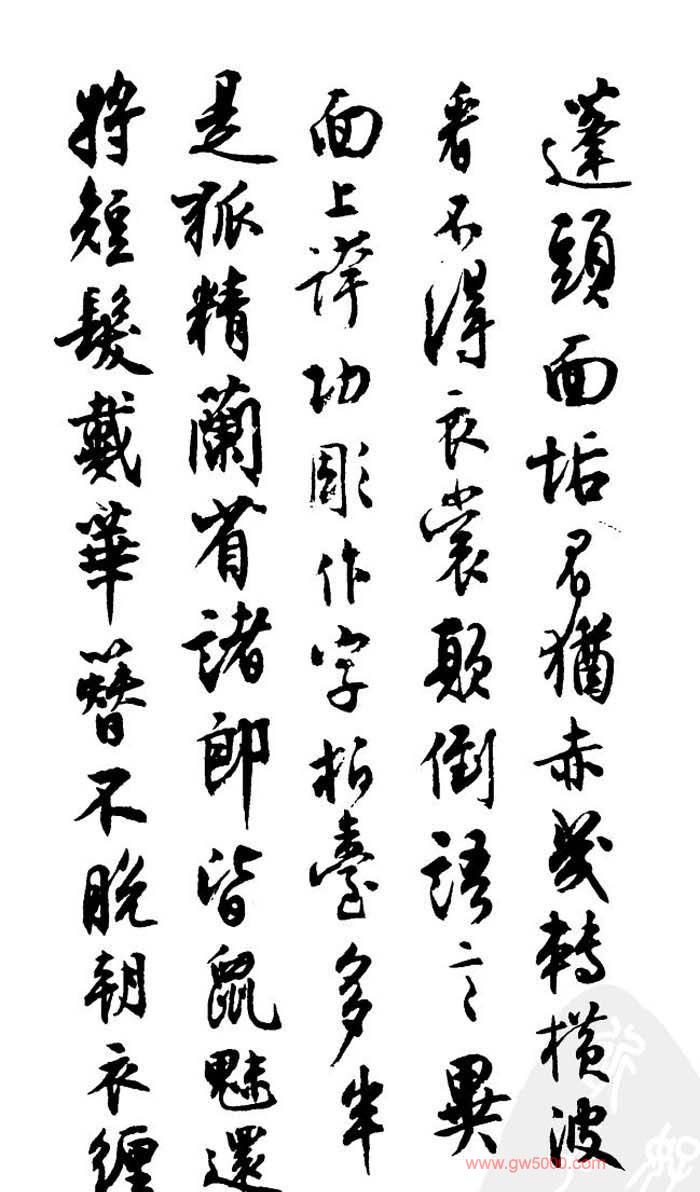 蓬頭面垢眉猶赤幾轉橫波
看不得衣裳顛倒語言異
面上誇功彫作字柏臺多半
是狐精蘭省諸郎皆鼠魅還
將短髮戴華簪不脫朝衣纏
www.gw5000.com